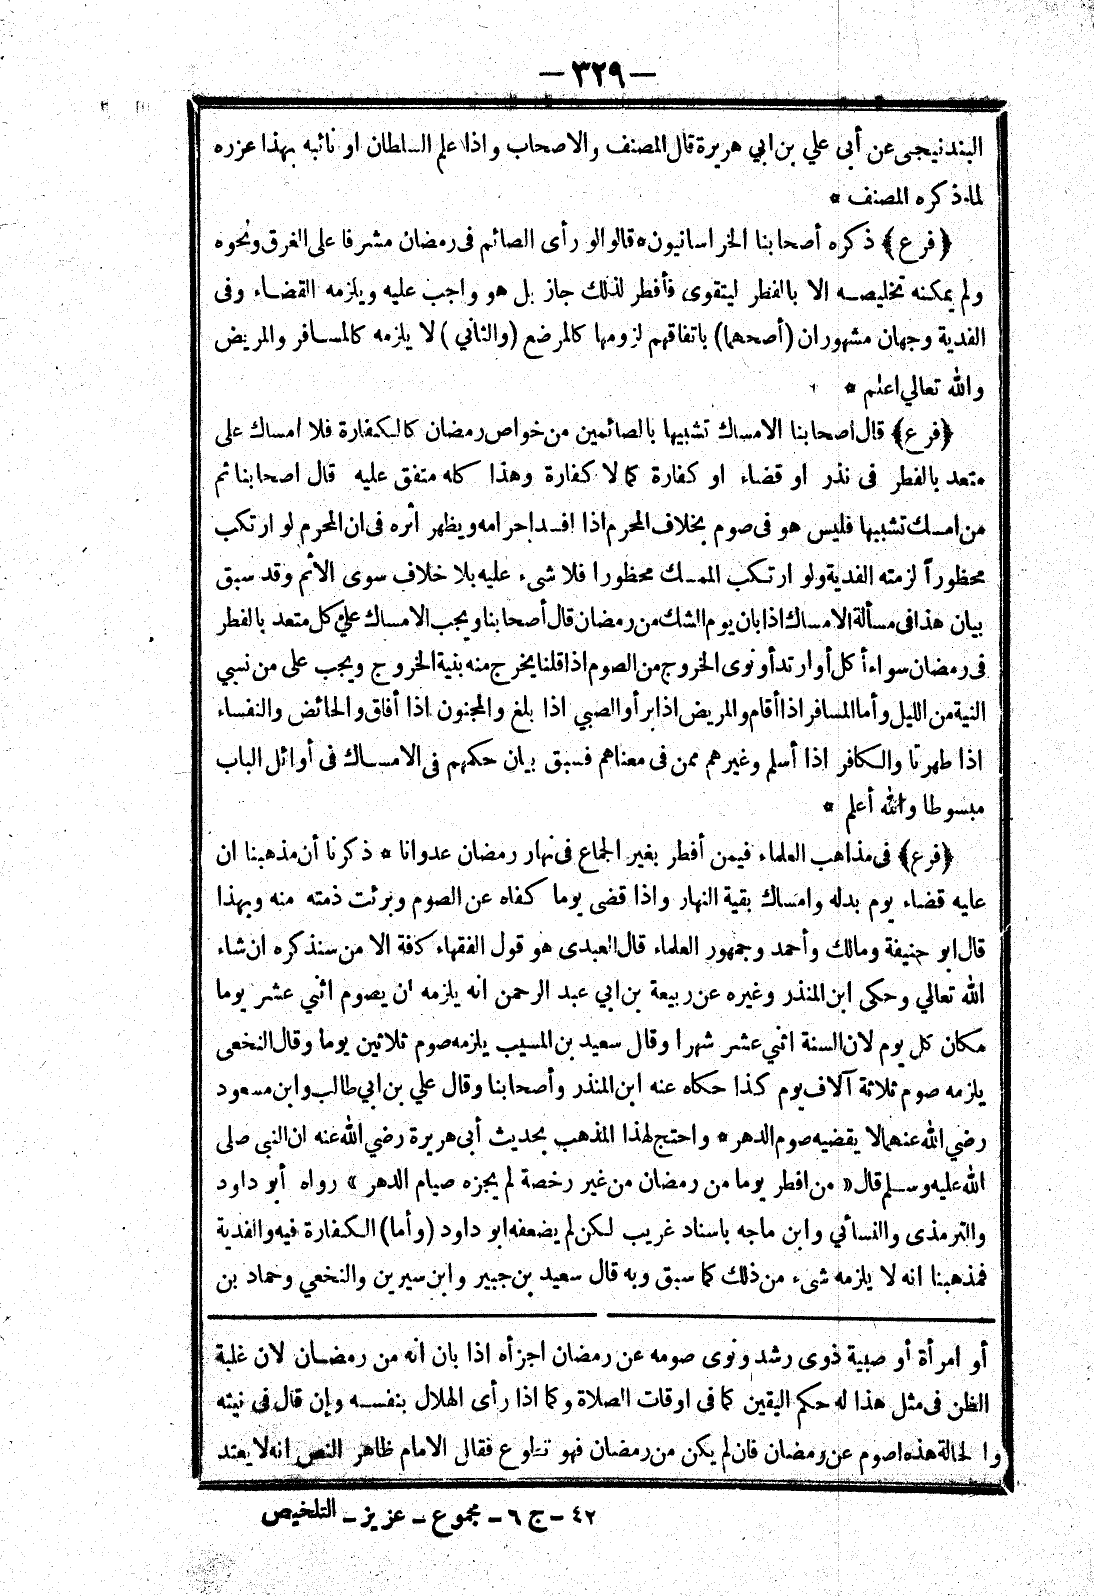 — ٣٢٩ —
البندنيجى عن أبى علي بن ابي هريرة قال المصنف والاصحاب واذا علم السلطان او نائبه بهذا عزره
لما ذكره المصنف *
﴿فرع﴾ ذكره أصحابنا الخراسانيون * قالوا لو رأى الصائم فى رمضان مشرفا على الغرق ونحوه
ولم يمكنه تخليصه الا بالفطر ليتقوى فأفطر لذلك جاز بل هو واجب عليه ويلزمه القضاء وفى
الفدية وجهان مشهوران (أصحهما) باتفاقهم لزومها كالمرضع (والثاني) لا يلزمه كالمسافر والمريض
والله تعالي اعلم *
﴿فرع﴾ قال اصحابنا الامساك تشبيها بالصائمين من خواص رمضان كالكفارة فلا امساك على
متعد بالفطر فى نذر او قضاء او كفارة كما لا كفارة وهذا كله متفق عليه قال اصحابنا ثم
من امسك تشبيها فليس هو فى صوم بخلاف المحرم اذا افسد احرامه ويظهر أثره فى ان المحرم لو ارتكب
محظوراً لزمته الفدية ولو ارتكب الممسك محظورا فلا شىء عليه بلا خلاف سوى الأثم وقد سبق
بيان هذا فى مسألة الامساك اذا بان يوم الشك من رمضان قال أصحابنا ويجب الامساك علي كل متعد بالفطر
فى رمضان سواء أكل أو ارتد أو نوى الخروج من الصوم اذا قلنا يخرج منه بنية الخروج ويجب على من نسي
النية من الليل وأما المسافر اذا أقام والمريض اذا برأ والصبي اذا بلغ والمجنون اذا أفاق والحائض والنفساء
اذا طهرتا والكافر اذا أسلم وغيرهم ممن فى معناهم فسبق بيان حكمهم فى الامساك فى أوائل الباب
مبسوطا والله أعلم *
﴿فرع﴾ فى مذاهب العلماء فيمن أفطر بغير الجماع فى نهار رمضان عدوانا * ذكرنا أن مذهبنا ان
عليه قضاء يوم بدله وامساك بقية النهار واذا قضى يوما كفاه عن الصوم وبرئت ذمته منه وبهذا
قال ابو حنيفة ومالك وأحمد وجمهور العلماء قال العبدى هو قول الفقهاء كافة الا من سنذكره ان شاء
الله تعالي وحكى ابن المنذر وغيره عن ربيعة بن ابي عبد الرحمن انه يلزمه ان يصوم اثني عشر يوما
مكان كل يوم لان السنة اثني عشر شهرا وقال سعيد بن المسيب يلزمه صوم ثلاثين يوما وقال النخعى
يلزمه صوم ثلاثة آلاف يوم كذا حكاه عنه ابن المنذر وأصحابنا وقال علي بن ابي طالب وابن مسعود
رضي الله عنهما لا يقضيه صوم الدهر * واحتج لهذا المذهب بحديث أبى هريرة رضي الله عنه ان النبي صلى
الله عليه وسلم قال « من افطر يوما من رمضان من غير رخصة لم يجزه صيام الدهر » رواه أبو داود
والترمذى والنسائي وابن ماجه باسناد غريب لكن لم يضعفه ابو داود (وأما) الكفارة فيه والفدية
فمذهبنا انه لا يلزمه شىء من ذلك كما سبق وبه قال سعيد بن جبير وابن سيرين والنخعي وحماد بن
أو امرأة أو صبية ذوى رشد ونوى صومه عن رمضان اجزأه اذا بان انه من رمضان لان غلبة
الظن فى مثل هذا له حكم اليقين كما فى اوقات الصلاة وكما اذا رأى الهلال بنفسه وإن قال فى نيته
والحالة هذه اصوم عن رمضان فان لم يكن من رمضان فهو تطوع فقال الامام ظاهر النص انه لا يعتد
٤٢ - ج ٦ - مجموع - عزيز - التلخيص